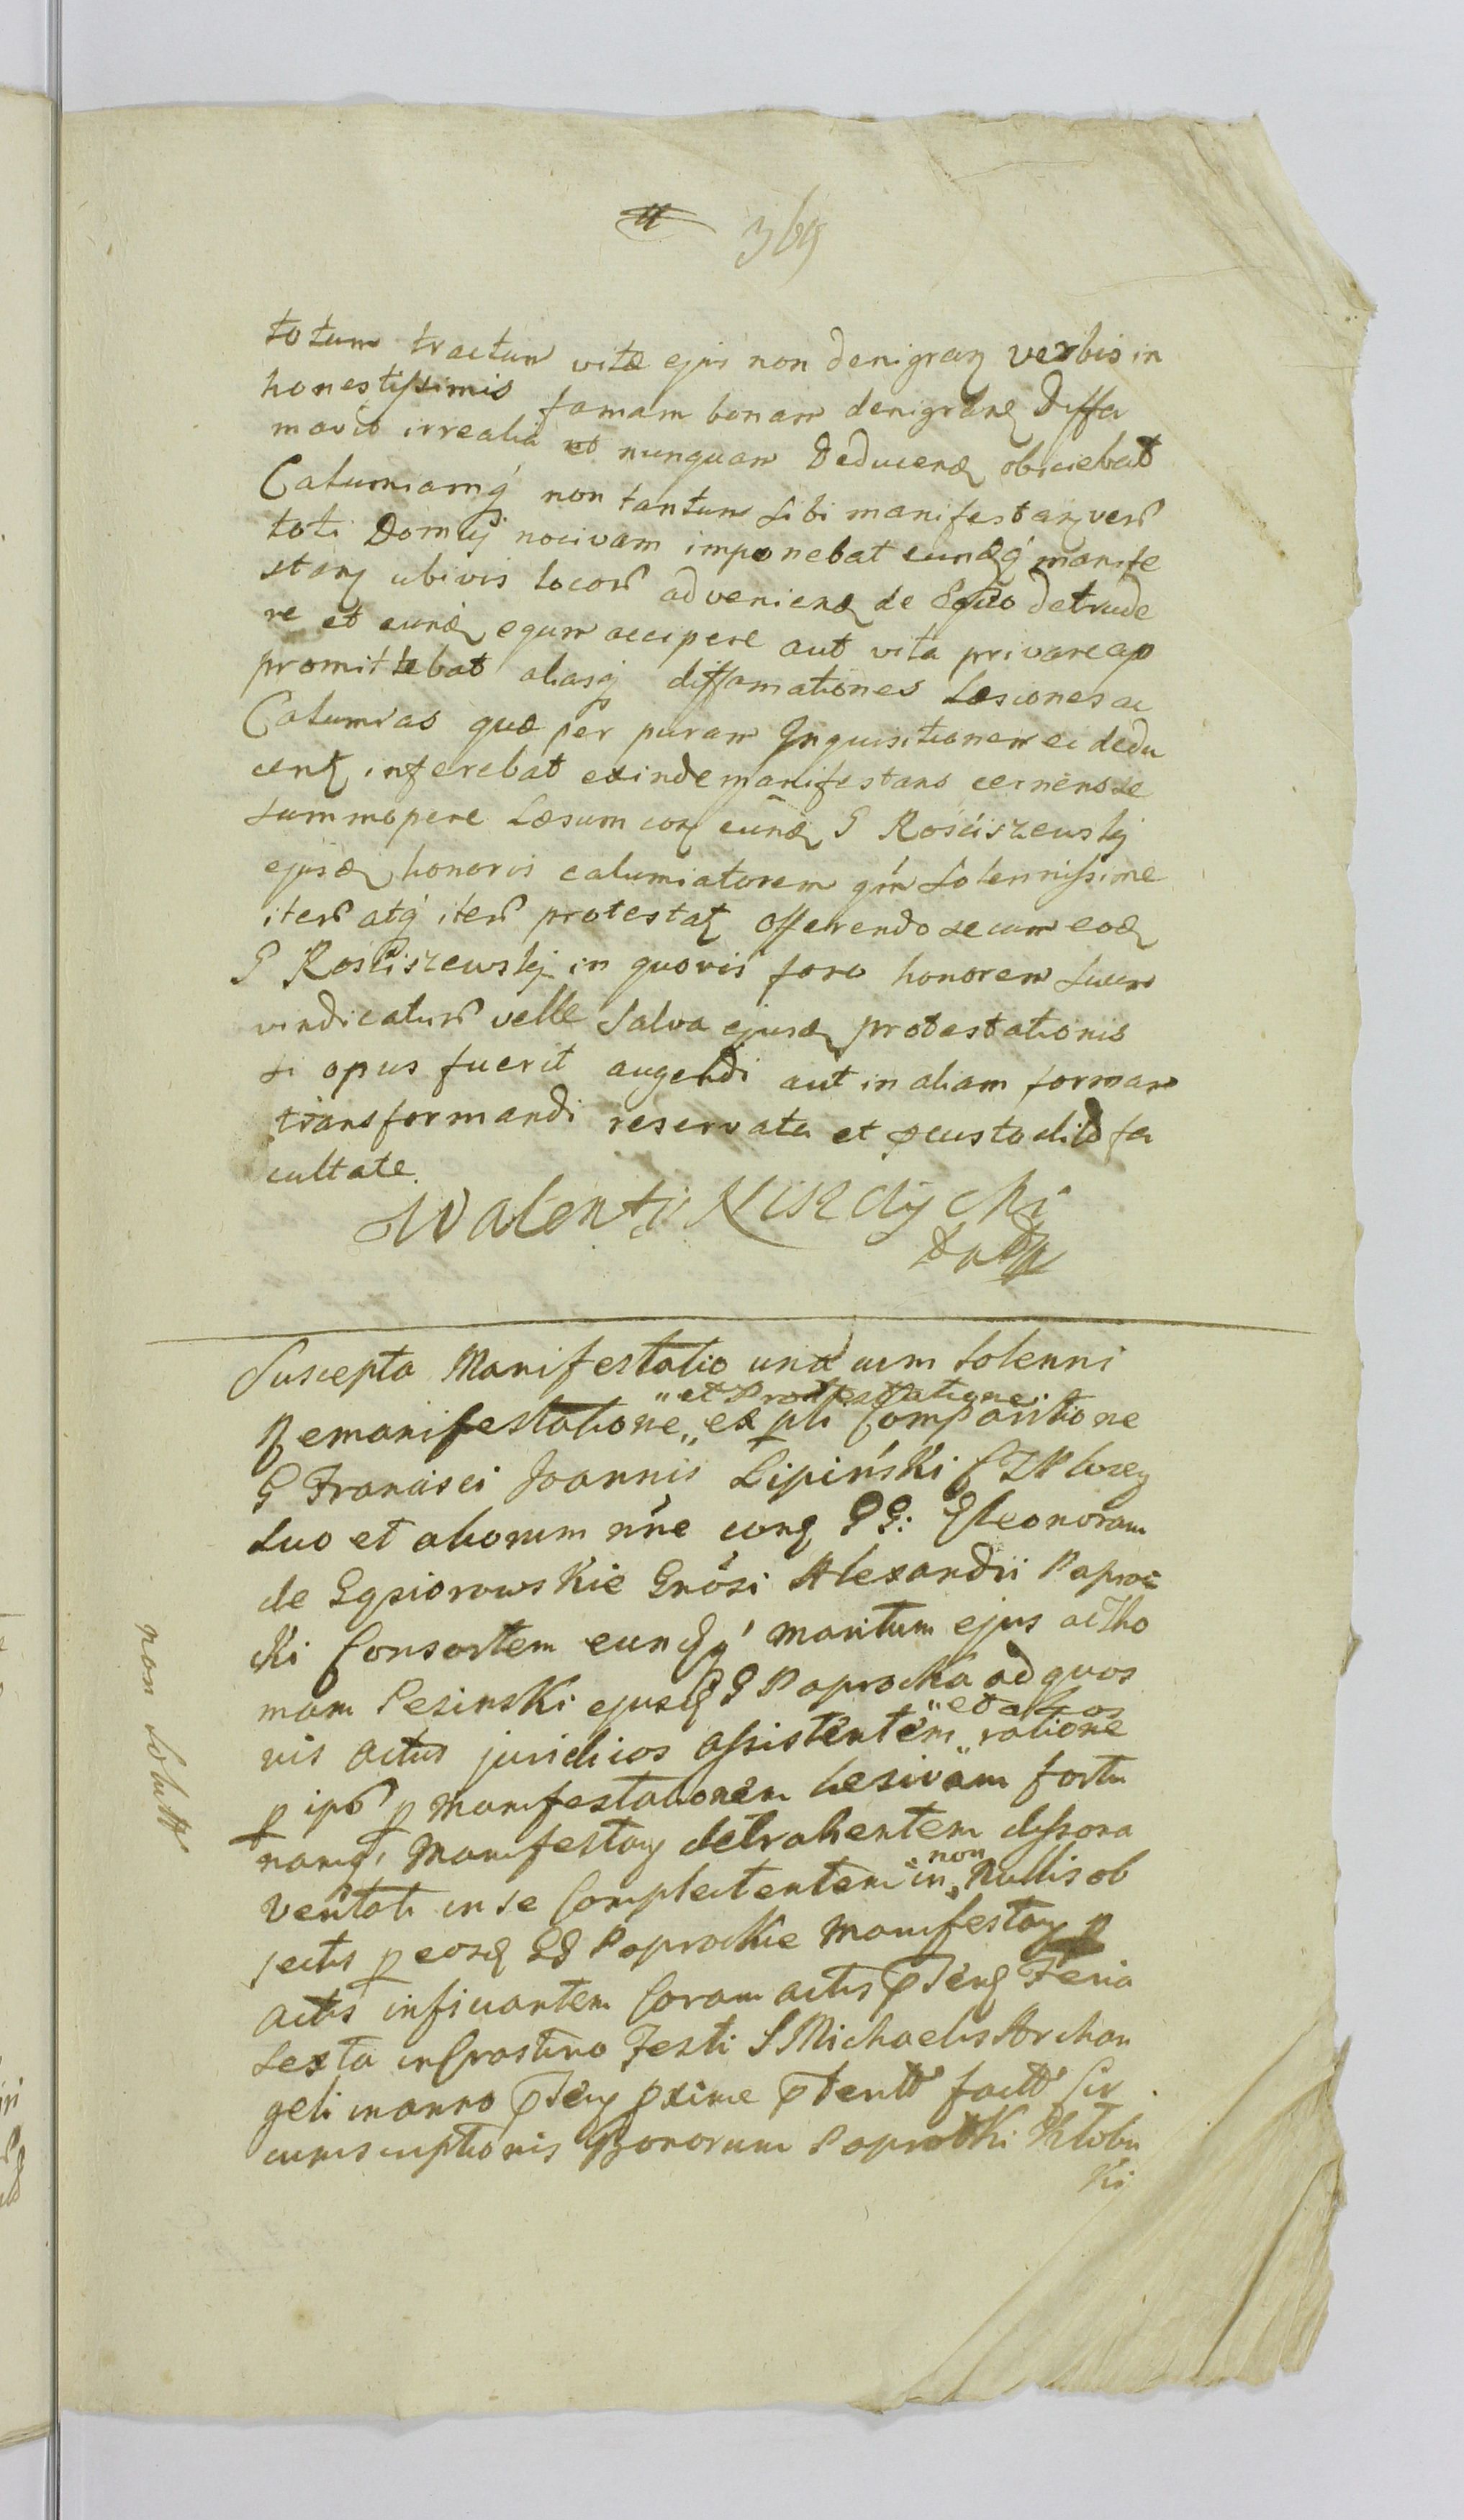 369
totum tractum vitæ ejus non denigran verbis in
honestissimis famam bonam denigranď Diffa
mavit irrealia et nunquam Deducenď obiiciebat
Calumniamq́ non tantum sibi manifestanť verů
toti Domui nocivam imponebat eundq́ manife
stanť ubivis locorů advenienď de Equo detrude
re et eundď equm accipere aut vita privare
promittebat aliasq́ diffamationes Læsiones ac
Calumnias quæ per puram Inquisitionem ei dedu
cenť inferebat exinde manifestans cernens se
summopere Læsum con eundď G Rościszewskj
ejusď honoris calumiatorem solennissime
iterů atq́ iterů protestať offerendo se cum eoď
G Rosciszewskj in quovis foro honorem suum
vindicaturů velle Salva ejusď protestationis
si opus fuerit augendi aut in aliam formam
transformandi reservata et custodita fa
cultate.
Walenty
Suscepta Manifestatio una cum solenni
"et Protestatione
Remanifestatione" ex pti Comparitione
G Francisci Joannis Lipiński
suo et aliorum nńe conť GG: Eleonoram
de Gąsiorowskie Gnosi Alexandri Paproc
cki Consortem eundq́ maritum ejus ac Tho
mam Pesinski ejusď G Paprocka ad quos
"et alios
vis actus juridicos assistentem" ratione
p ipů p Manifestationem lesivam fortu
namq́ Manifestanť detrahentem dissona
non
Veritati in se Complectentem in" Nullis ob
jectis p eosď GG Paprockie Manifestanť p
actis inficiantem Coram actis pſenť Feria
sexta in Crastino Festi S Michaelis Archan
geli in anno pſenť pxime ptentt factt Cir
cumscriptionis Bonorum Paprotki Kłobu
ki
non solutt